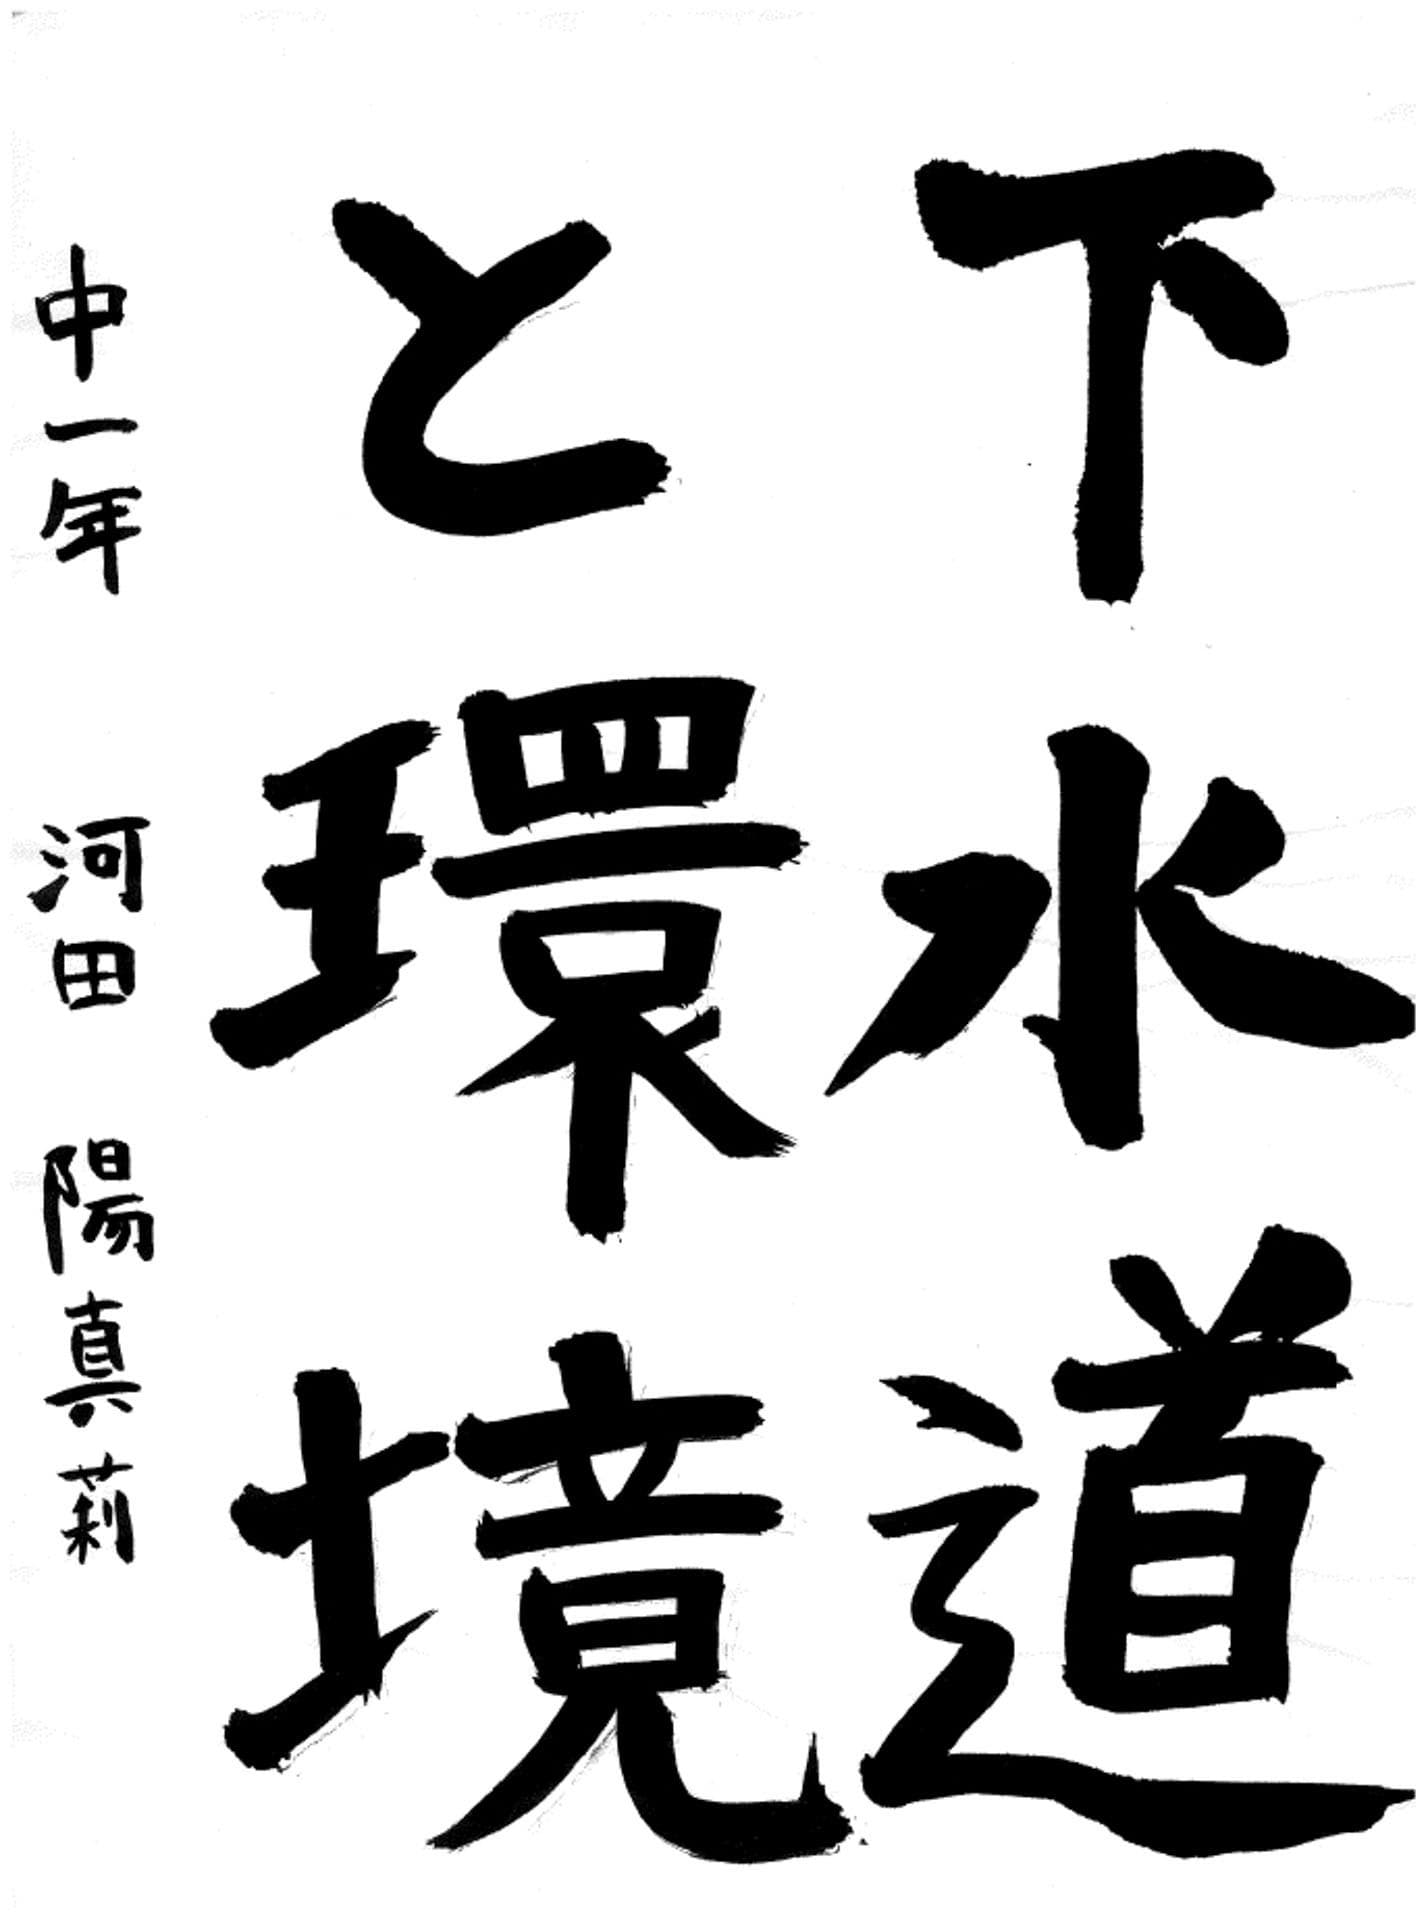 下水道
と環境
中一年 河田 陽真莉